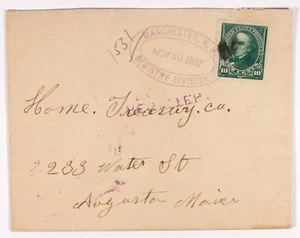 1531
MANCHESTER, N.H.
NOV 30 1892
REGISTRY DIVISION
10 10
Home. Treasury. Co.
233 Water St
Augusta Maine